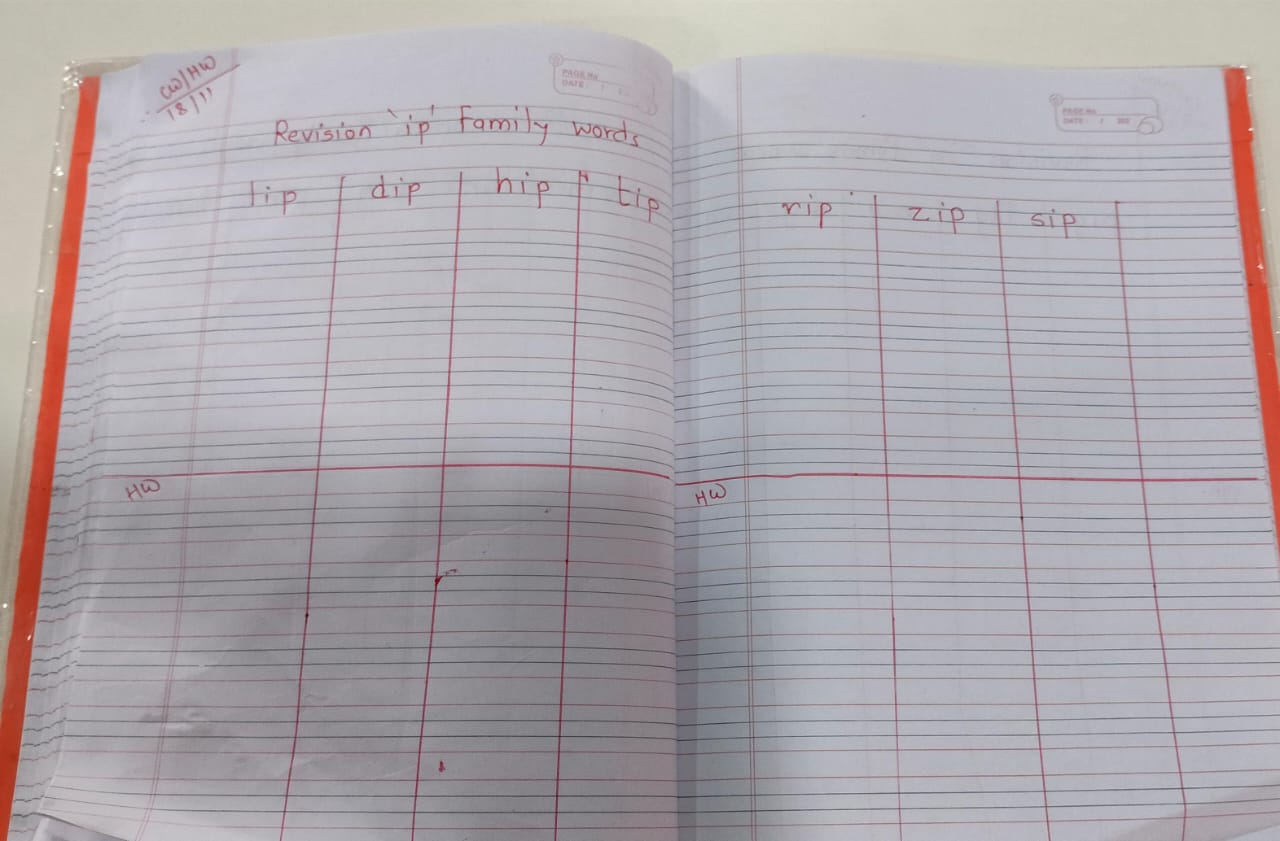 CW/HW
18/11
PAGE No
DATE: /
Revision 'ip' Family words
lip dip hip tip
HW
PAGE No
DATE: / 202
rip zip sip
HW